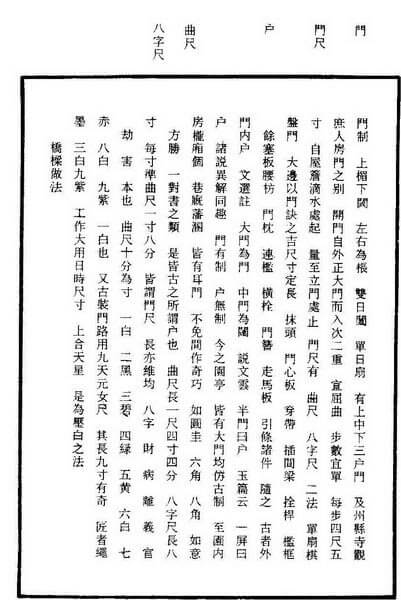 門
門尺
户
曲尺
八字尺
門制 上楣下閾 左右為棖 雙曰闔 單曰扇 有上中下三户門 及州縣寺觀
庶人房門之别 開門自外正大門而入次二重 宜屈曲 步數宜單 每步四尺五
寸 自屋簷滴水處起 量至立門處止 門尺有 曲尺 八字尺 二法 單扇棋
盤門 大邊以門訣之吉尺寸定長 抹頭 門心板 穿帶 插間梁 拴桿 檻框
餘塞板腰枋 門枕 連檻 橫栓 門簪 走馬板 引條諸件 隨之 古者外
門内户 文選註 大門為門 中門為闥 説文雲 半門曰户 玉篇云 一屏曰
户 諸説異解同趣 門有制 户無制 今之園亭 皆有大門均仿古制 至園内
房櫳廂個 巷廄藩溷 皆有耳門 不免間作奇巧 如圓圭 六角 八角 如意
方勝 一對書之類 是皆古之所謂户也 曲尺長一尺四寸四分 八字尺長八
寸 每寸準曲尺一寸八分 皆謂門尺 長亦維均 八字 財 病 離 義 官
劫 害 本也 曲尺十分為寸 一白 二黑 三碧 四緑 五黄 六白 七
赤 八白 九紫 一白也 又古裝門路用九天元女尺 其長九寸有奇 匠者繩
墨 三白九紫 工作大用日時尺寸 上合天星 是為壓白之法
橋樑做法